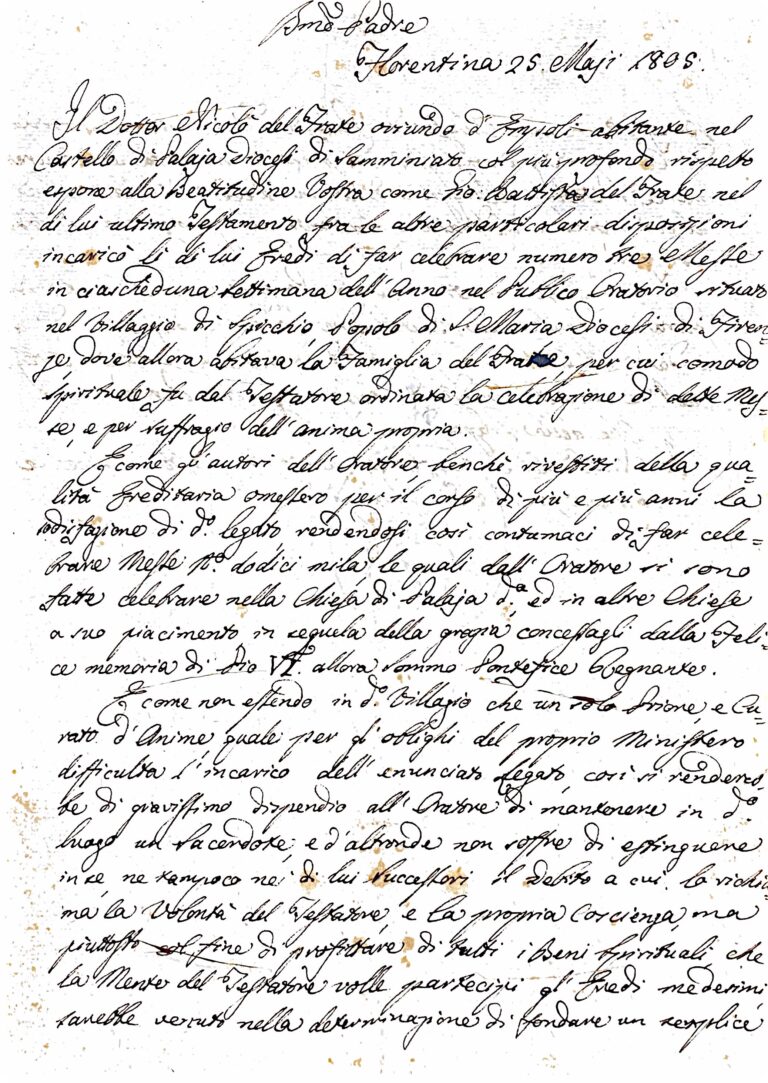 Bmo Padre
Florentina 25. Maji 1805.
Il Dottor Nicolò del Frate oriundo d'Empoli abitante nel
Castello di Palaja Diocesi di Samminiato col più profondo rispetto
espone alla Beatitudine Vostra come Gio: Battista del Frate nel
di lui ultimo Testamento fra le altre particolari disposizioni
incaricò li di lui Eredi di far celebrare numero tre Messe
in ciascheduna settimana dell'Anno nel Publico Oratorio situato
nel Villaggio di Spicchio Popolo di S. Maria Diocesi di Firen=
ze dove allora abitava la Famiglia del Frate per cui comodo
spirituale fu dal Testatore ordinata la celebrazione di dette Mes=
se, e per suffragio dell'anima propria.
E come gl'autori dell'Oratore, benchè rivestiti della qua=
lità Ereditaria omessero per il corso di più e più anni la
sodisfazione di do. legato rendendosi così contumaci di far cele=
brare Messe No. dodici mila le quali dall'Oratore si sono
fatte celebrare nella Chiesa di Palaja da. ed in altre Chiese
a suo piacimento in sequela della grazia concessagli dalla Feli=
ce memoria di Pio VIo. allora Sommo Pontefice Regnante.
E come non essendo in do. Villagio che un solo Priore, e Cu=
rato d'Anime quale per gl'oblighi del proprio Ministero
difficulta l'incarico dell'enunciato legato, così si rendereb=
be di gravissimo dispendio all'Oratore di mantenere in do.
luogo un Sacerdote, e d'altronde non soffre di estinguere
in se, ne tampoco nei di lui Successori il debito a cui lo richia=
ma la Volontà del Testatore, e la propria Coscienza, ma
piuttosto col fine di profittare di tutti i Beni Spirituali, che
la Mente del Testatore volle partecipi gl'Eredi medesimi
sarebbe venuto nella determinazione di fondare un semplice